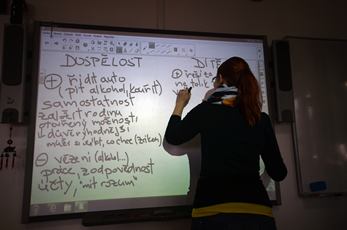 DOSPĚLOST
+ řídit auto
(pít alkohol, kouřit)
samostatnost
založit rodinu
otevřeny možnosti
důvěryhodnější
může si volit, co chce (zákon)
- vězení (alkohol...)
práce, zodpovědnost
účty, "mít rozum"
DĚT
+
ne tolik